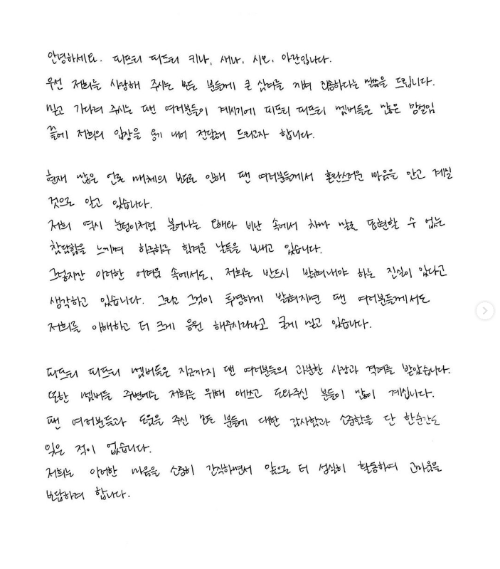 안녕하세요. 피프티 피프티 키나, 새나, 시오, 아란입니다.
우선 저희를 사랑해 주시는 모든 분들께 큰 심려를 끼쳐 죄송하다는 말씀을 드립니다.
믿고 기다려 주시는 팬 여러분들이 계시기에 피프티 피프티 멤버들은 많은 망설임
끝에 저희의 입장을 용기 내어 전달해 드리고자 합니다.
현재 많은 언론 매체의 보도로 인해 팬 여러분들께서 혼란스러운 마음을 안고 계실
것으로 알고 있습니다.
저희 역시 눈덩이처럼 불어나는 오해와 비난 속에서 차마 말로 표현할 수 없는
참담함을 느끼며 하루하루 힘겨운 날들을 보내고 있습니다.
그렇지만 이러한 어려움 속에서도, 저희는 반드시 밝혀내야 하는 진실이 있다고
생각하고 있습니다. 그리고 그것이 투명하게 밝혀지면 팬 여러분들께서도
저희를 이해하고 더 크게 응원 해주시리라고 굳게 믿고 있습니다.
피프티 피프티 멤버들은 지금까지 팬 여러분들의 과분한 사랑과 격려를 받았습니다.
또한 멤버들 주변에는 저희를 위해 애쓰고 도와주신 분들이 많이 계십니다.
팬 여러분들과 도움을 주신 모든 분들에 대한 감사함과 소중함을 단 한순간도
잊은 적이 없습니다.
저희는 이러한 마음을 소중히 간직하면서 앞으로 더 성실히 활동하여 고마움을
보답하려 합니다.